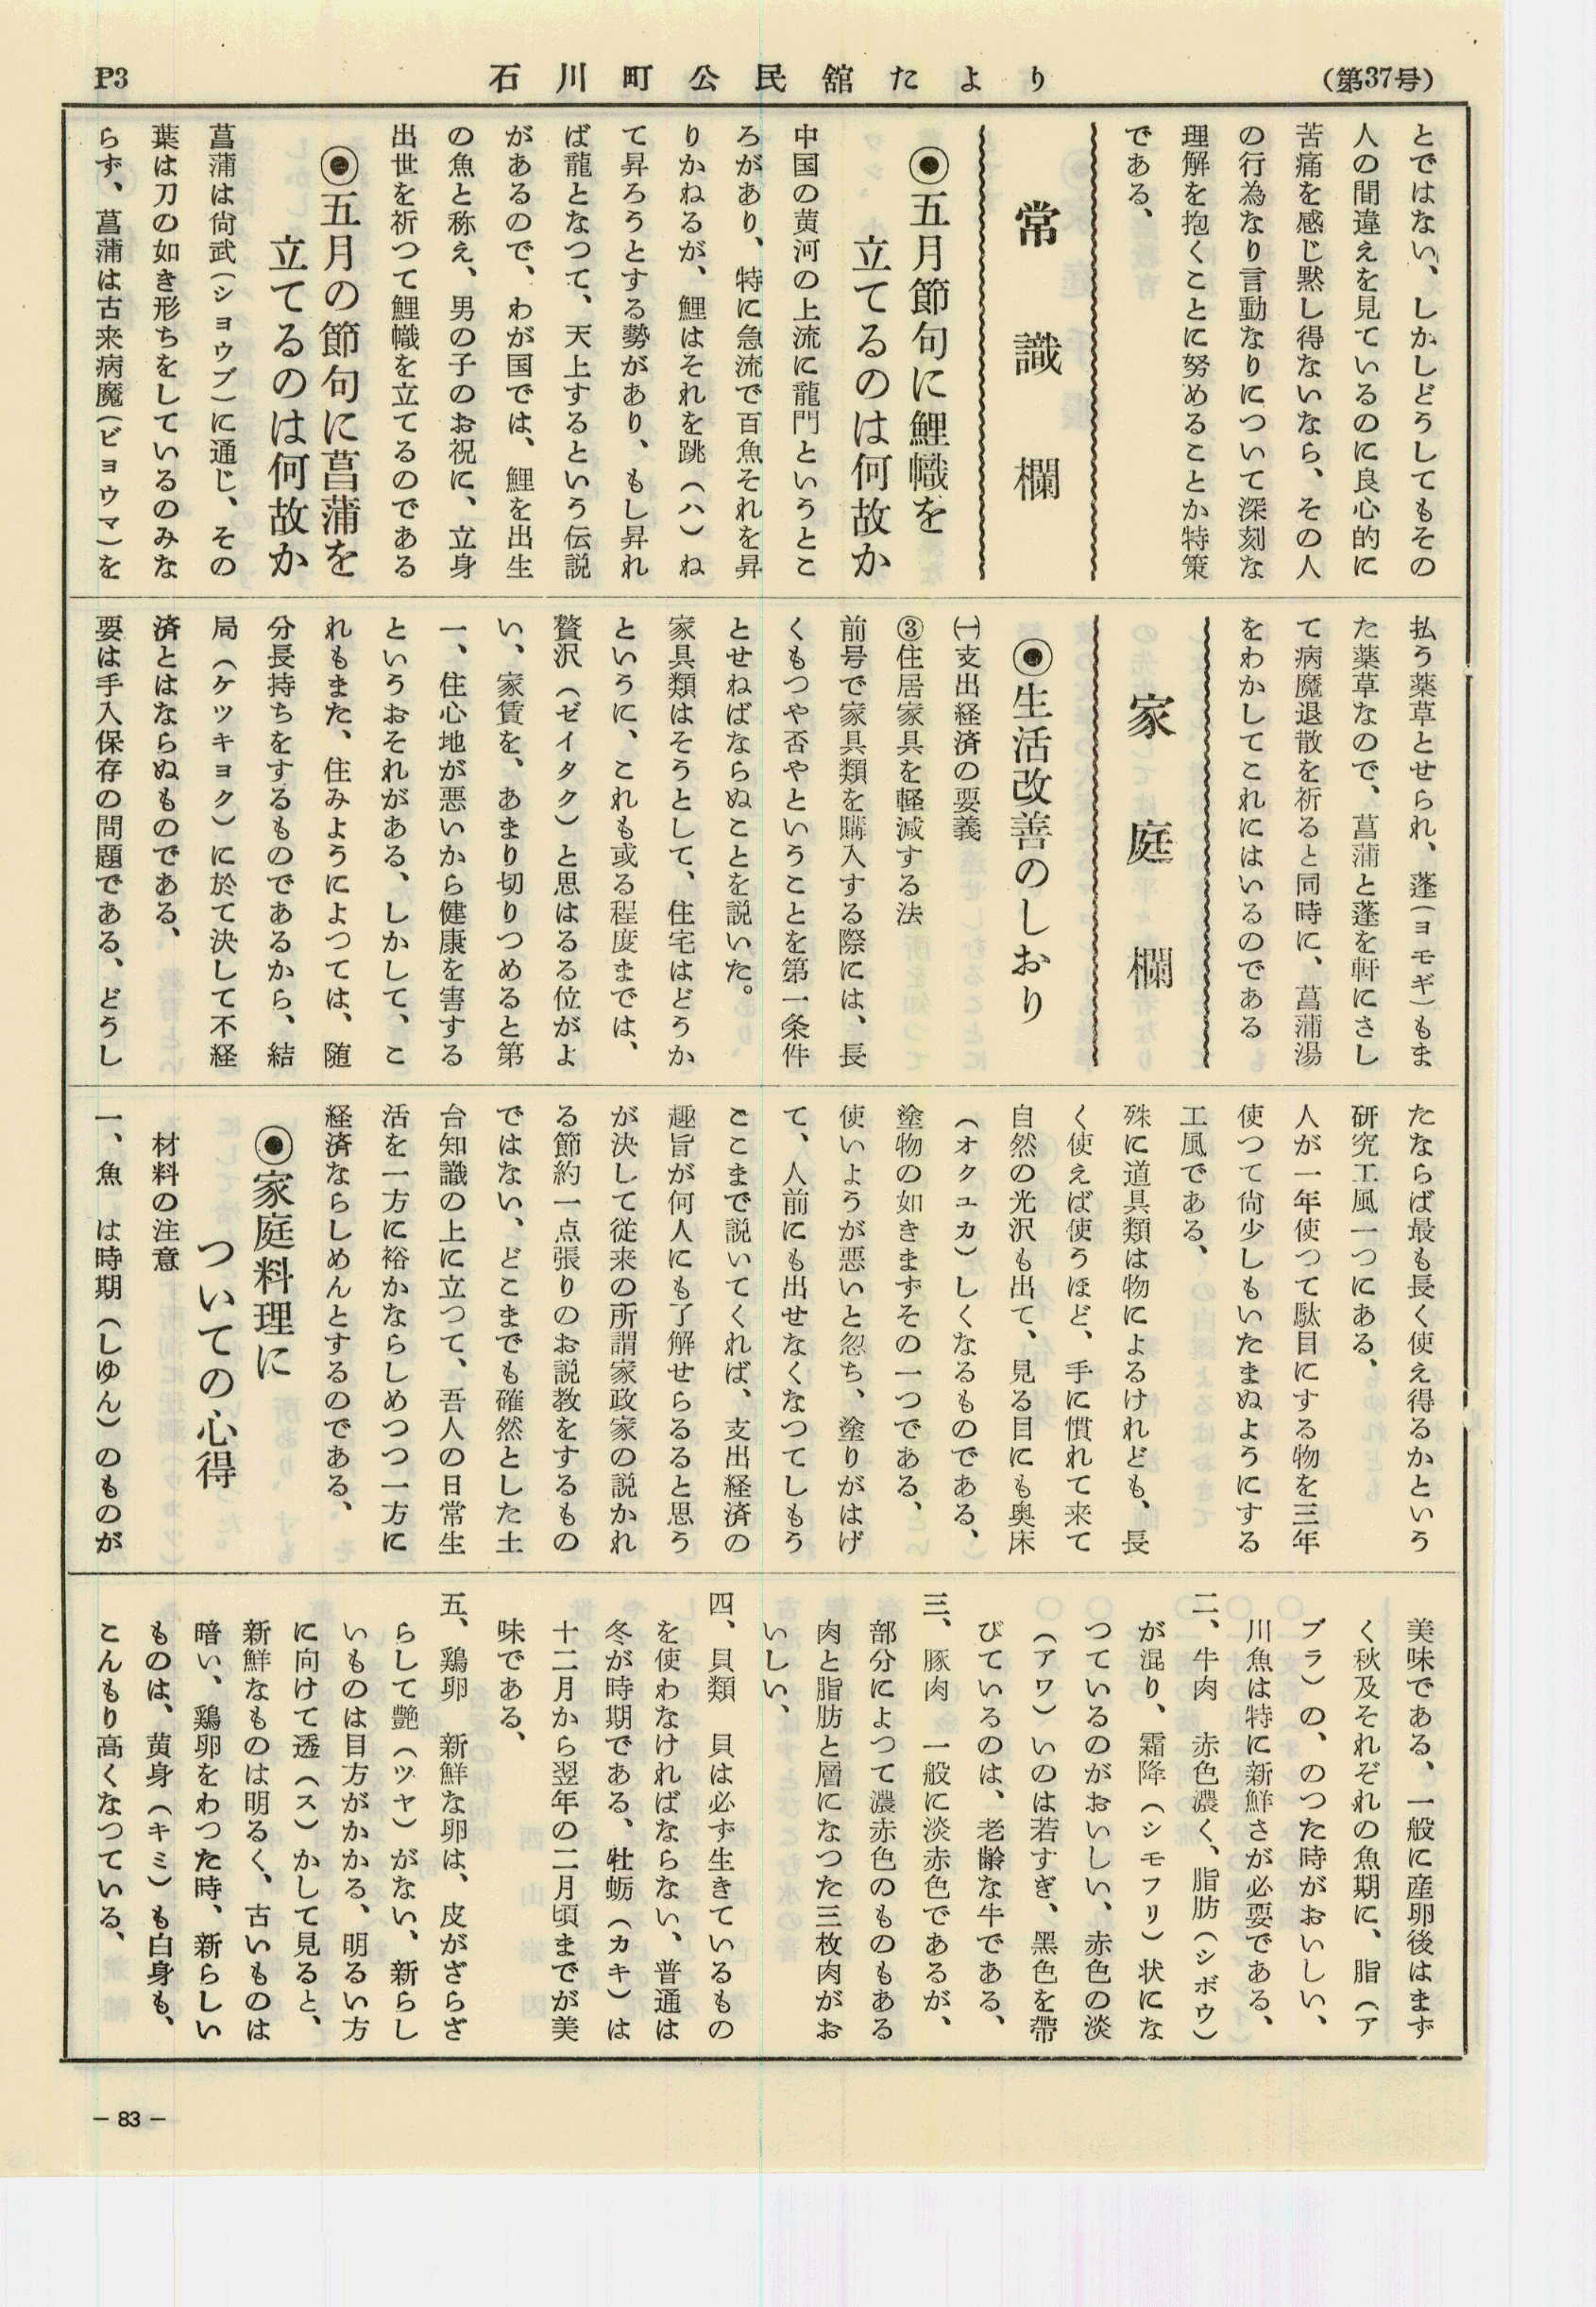 P3
石川町公民舘たより
（第37号）
とではない、しかしどうしてもその
人の間違えを見ているのに良心的に
苦痛を感じ黙し得ないなら、その人
の行為なり言動なりについて深刻な
理解を抱くことに努めることか特策
である、
常識欄
◉五月節句に鯉幟を
立てるのは何故か
中国の黄河の上流に龍門というとこ
ろがあり、特に急流で百魚それを昇
りかねるが、鯉はそれを跳（ハ）ね
て昇ろうとする勢があり、もし昇れ
ば龍となつて、天上するという伝説
があるので、わが国では、鯉を出生
の魚と称え、男の子のお祝に、立身
出世を祈つて鯉幟を立てるのである
◉五月の節句に菖蒲を
立てるのは何故か
菖蒲は尙武（ショウブ）に通じ、その
葉は刀の如き形ちをしているのみな
らず、菖蒲は古来病魔（ビョウマ）を
払う薬草とせられ、蓬（ヨモギ）もま
た薬草なので、菖蒲と蓬を軒にさし
て病魔退散を祈ると同時に、菖蒲湯
をわかしてこれにはいるのである
家庭欄
◉生活改善のしおり
㈠支出経済の要義
③住居家具を軽減する法
前号で家具類を購入する際には、長
くもつや否やということを第一条件
とせねばならぬことを説いた。
家具類はそうとして、住宅はどうか
というに、これも或る程度までは、
贅沢（ゼイタク）と思はるる位がよ
い、家賃を、あまり切りつめると第
一、住心地が悪いから健康を害する
というおそれがある、しかして、こ
れもまた、住みようによつては、随
分長持ちをするものであるから、結
局（ケツキョク）に於て決して不経
済とはならぬものである、
要は手入保存の問題である、どうし
たならば最も長く使え得るかという
研究工風一つにある、
人が一年使つて駄目にする物を三年
使つて尙少しもいたまぬようにする
工風である、
殊に道具類は物によるけれども、長
く使えば使うほど、手に慣れて来て
自然の光沢も出て、見る目にも奥床
（オクユカ）しくなるものである、
塗物の如きまずその一つである、
使いようが悪いと忽ち、塗りがはげ
て、人前にも出せなくなつてしもう
ここまで説いてくれば、支出経済の
趣旨が何人にも了解せらるると思う
が決して従来の所謂家政家の説かれ
る節約一点張りのお説教をするもの
ではない、どこまでも確然とした土
台知識の上に立つて、吾人の日常生
活を一方に裕かならしめつつ一方に
経済ならしめんとするのである、
◉家庭料理に
ついての心得
材料の注意
一、魚　は時期（しゆん）のものが
美味である、一般に産卵後はまず
く秋及それぞれの魚期に、脂（ア
ブラ）の、のつた時がおいしい、
川魚は特に新鮮さが必要である、
二、牛肉　赤色濃く、脂肪（シボウ）
が混り、霜降（シモフリ）状にな
つているのがおいしい、赤色の淡
（アワ）いのは若すぎ、黒色を帶
びているのは、老齢な牛である、
三、豚肉　一般に淡赤色であるが、
部分によつて濃赤色のものもある
肉と脂肪と層になつた三枚肉がお
いしい、
四、貝類　貝は必ず生きているもの
を使わなければならない、普通は
冬が時期である、牡蛎（カキ）は
十二月から翌年の二月頃までが美
味である、
五、鶏卵　新鮮な卵は、皮がざらざ
らして艶（ツヤ）がない、新らし
いものは目方がかかる、明るい方
に向けて透（ス）かして見ると、
新鮮なものは明るく、古いものは
暗い、鶏卵をわつた時、新らしい
ものは、黄身（キミ）も白身も、
こんもり高くなつている、
－83－